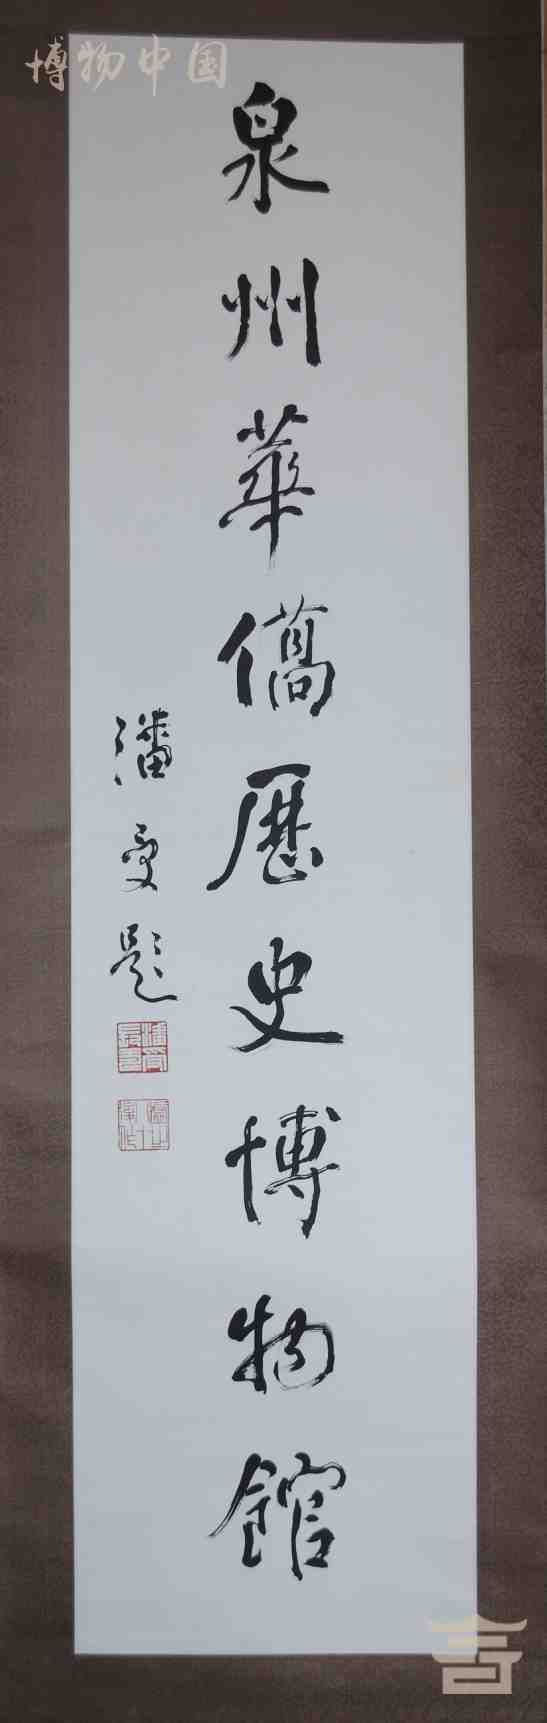 博物中国
泉州華僑歷史博物館
潘受題